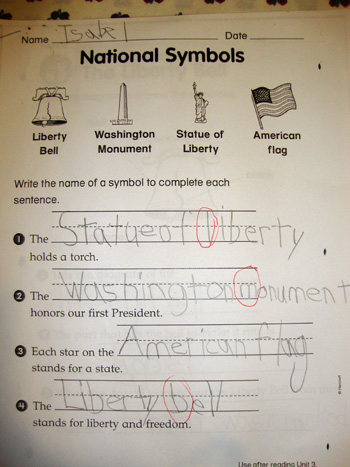 Name Isabel Date
National Symbols
Liberty Bell Washington Monument Statue of Liberty American flag
Write the name of a symbol to complete each
sentence.
1 The Statue of liberty
holds a torch.
2 The Washington monument
honors our first President.
3 Each star on the American flag
stands for a state.
4 The Liberty bell
stands for liberty and freedom.
Use after reading Unit 3.